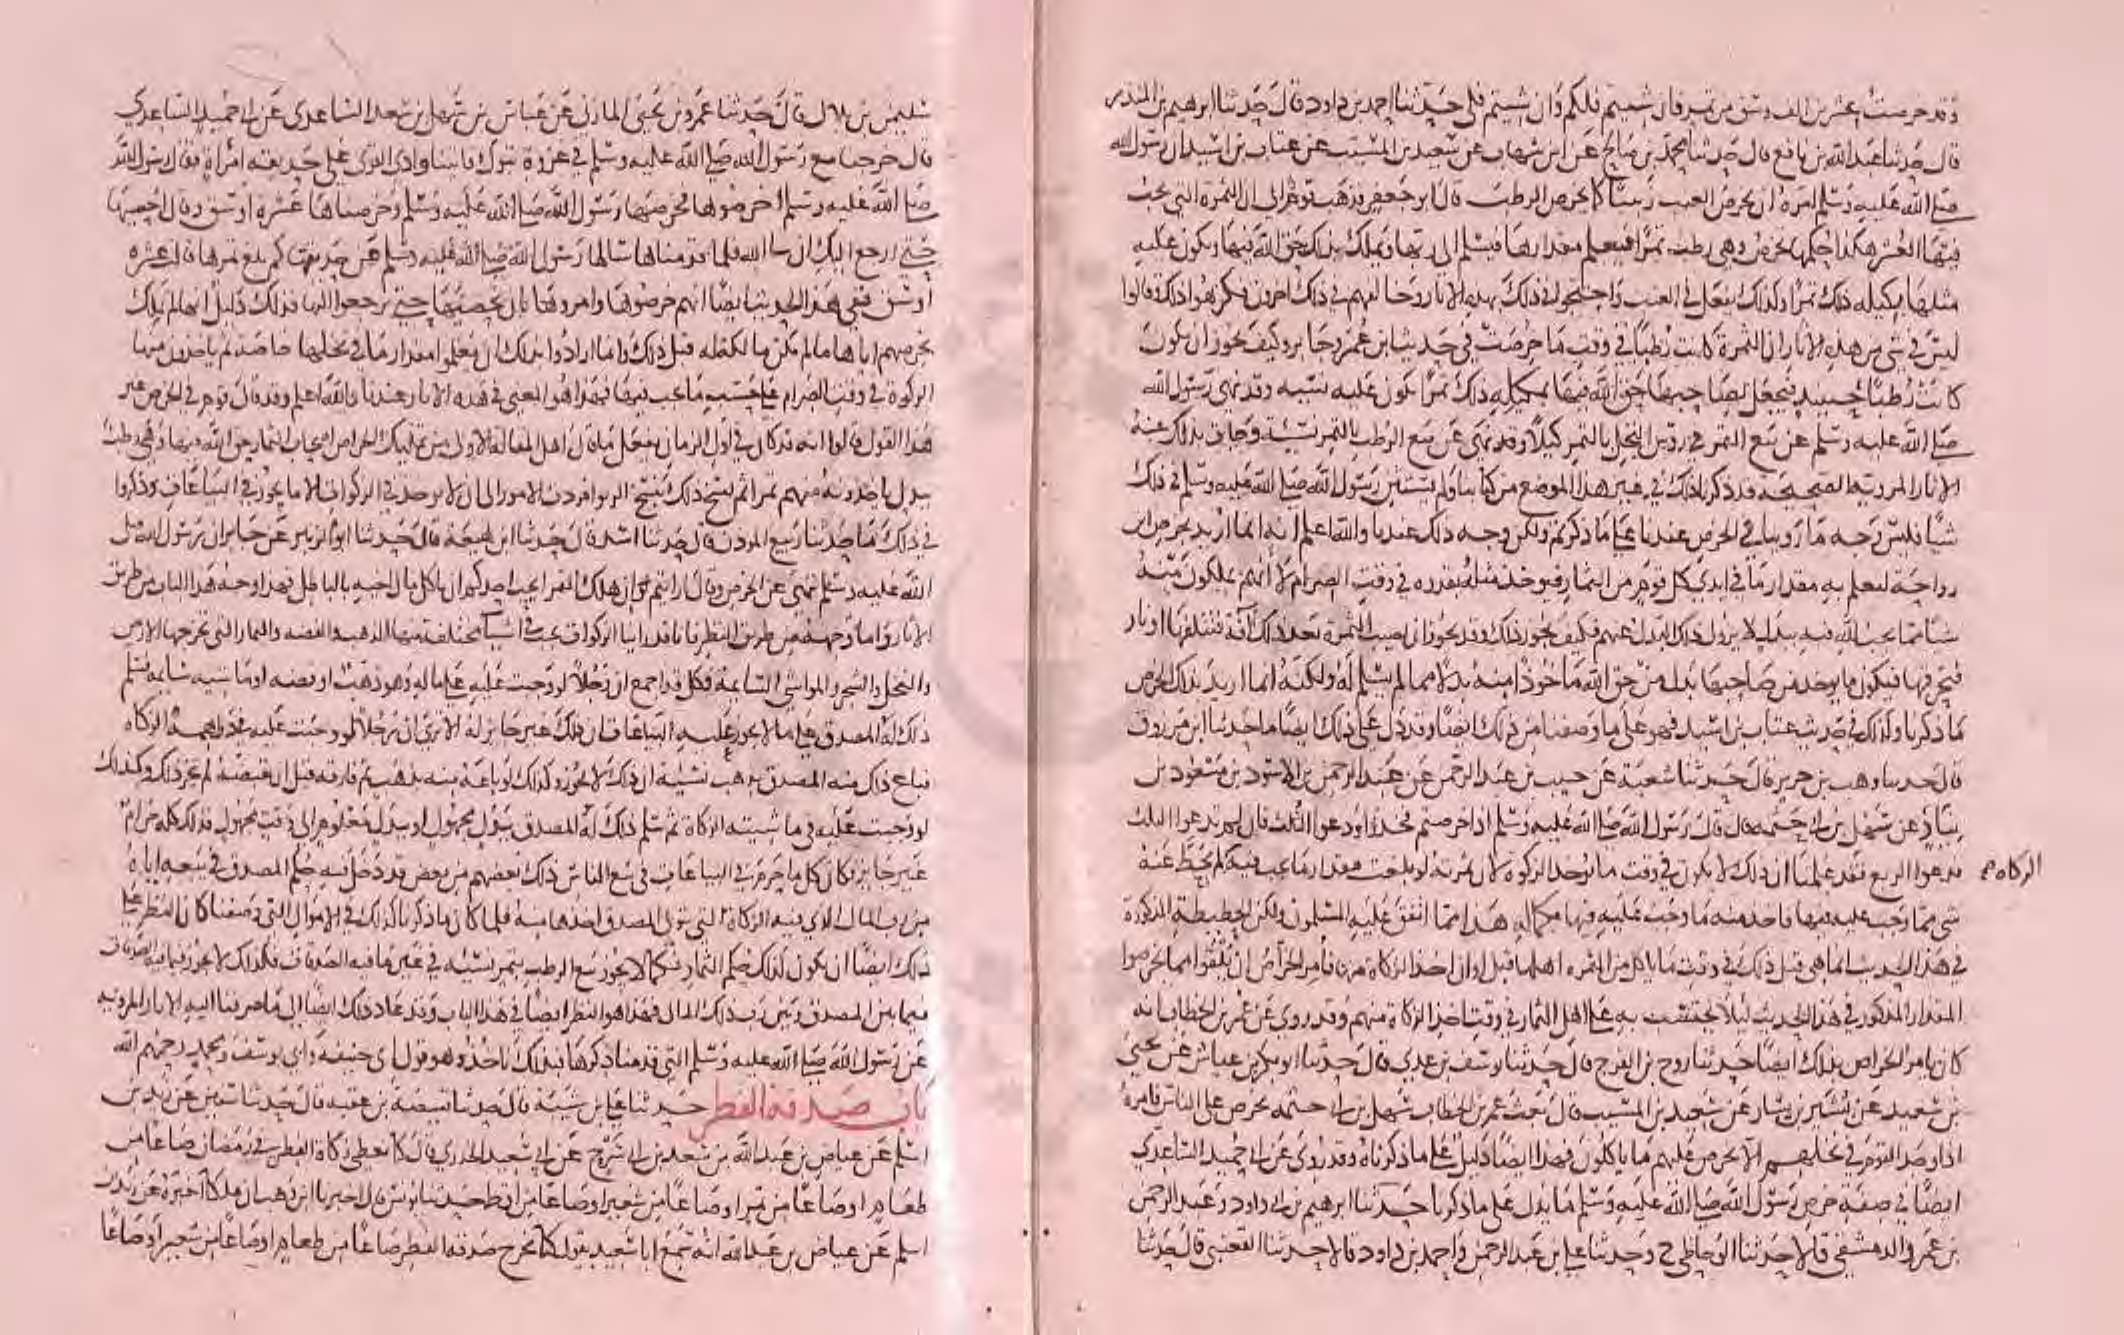 وقد خرصت عشرين الف وسق من تمر فان شيتم فلكم وان شيتم فلي حدثنا احمد بن داود قال حدثنا ابرهيم بن المنذر
قال حدثنا عبد الله بن نافع قال حدثنا محمد بن صالح عن ابن شهاب عن سعيد بن المسيب عن عتاب بن اسيد ان رسول الله
صلى الله عليه وسلم امره ان يخرص العنب زبيبا كما يخرص الرطب قال ابو جعفر فذهب قوم الى ان الثمرة التي يجب
فيها العشر هكذا حكمها تخرص وهي رطب تمرا فيعلم مقدارها فتسلم الى ربها ويملك بذلك حق الله فيها ويكون عليه
مثلها مكيله ذلك تمرا وكذلك يفعل في العنب واحتجوا في ذلك بهذه الاثار وخالفهم في ذلك اخرون فكرهوا ذلك وقالوا
ليس في شي من هذه الاثار ان الثمرة كانت رطبا في وقت ما خرصت في حديث ابن عمر وجابر وكيف يجوز ان يكون
كانت رطبا حينيد فيجعل لصاحبها حق الله فيها بمكيله ذلك تمرا يكون عليه نسيه وقد نهى رسول الله
صلى الله عليه وسلم عن بيع التمر في روس النخل بالتمر كيلا ونهى عن بيع الرطب بالتمر نسيئة وجات بذلك عنه
الاثار المروية الصحيحه قد ذكرنا ذلك في غير هذا الموضع من كتابنا ولم يستثن رسول الله صلى الله عليه وسلم في ذلك
شيا فليس وجه ما روينا في الخرص عندنا على ما ذكرتم ولكن وجه ذلك عندنا والله اعلم انه انما اريد بخرص ابن
رواحة ليعلم به مقدار ما في ايدي كل قوم من الثمار فيوخذ مثله بقدره في وقت الصرام لا انهم يملكون منه
شيا مما يجب لله فيه ببدل لا يزول ذلك البدل عنهم فكيف يجوز ذلك وقد يجوز ان تصيب الثمرة بعد ذلك آفة فتتلفها او نار
فتحرقها فيكون ما يوخذ من صاحبها بدلا من حق الله ماخوذا منه بدلا مما لم يسلم له ولكنه انما اريد بذلك الخرص
ما ذكرنا وكذلك في حديث عتاب بن اسيد فهو على ما وصفنا من ذلك ايضا وقد دل على ذلك ايضا ما حدثنا ابن مرزوق
قال حدثنا وهب بن جرير قال حدثنا شعبة عن حبيب بن عبد الرحمن عن عبد الرحمن بن الاسود بن مسعود بن
نيار عن سهل بن ابي حثمه قال قال رسول الله صلى الله عليه وسلم اذا خرصتم فخذوا ودعوا الثلث فان لم تدعوا الثلث
فدعوا الربع فقد علمنا ان ذلك لا يكون في وقت ما توخذ الزكوة لان ثمرته لو بلغت مقدار ما يجب فيه لم يحط عنه
الزكاه
شي مما وجب عليه فيها فاخذ منه ما وجب عليه فيها بكماله هذا مما اتفق عليه المسلمون ولكن الحطيطة المذكورة
في هذا الحديث انما هي قبل ذلك في وقت ما ياكل من الثمره اهلها قبل اوان اخذ الزكاة منها فامر الخراص ان يلقوا مما يخرصوا
المقدار المذكور في هذا الحديث ليلا يحتسب به على اهل الثمار في وقت اخذ الزكاة منهم وقد روي عن عمر بن الخطاب انه
كان يامر الخراص بذلك ايضا حدثنا روح بن الفرج قال حدثنا يوسف بن عدي قال حدثنا ابو بكر بن عياش عن يحيى
بن سعيد عن بشير بن يسار عن سعيد بن المسيب قال بعث عمر بن الخطاب سهل بن ابي حثمه يخرص على الناس فامره
اذا وجد القوم في نخلهم الا يخرص عليهم ما ياكلون فهذا ايضا دليل على ما ذكرناه وقد روي عن ابي حميد الساعدي
ايضا في صفة خرص رسول الله صلى الله عليه وسلم ما يدل على ما ذكرنا حدثنا ابرهيم بن ابي داود وعبد الرحمن
بن عمرو الدمشقي قالا حدثنا الوحاظي ح وحدثنا علي بن عبد الرحمن واحمد بن داود قالا حدثنا القعنبي قال حدثنا
سليمن بن بلال قال حدثنا عمرو بن يحيى المازني عن عباس بن سهل بن سعد الساعدي عن ابي حميد الساعدي
قال خرجنا مع رسول الله صلى الله عليه وسلم في غزوة تبوك فاتينا وادي القرى على حديقه امراة فقال رسول الله
صلى الله عليه وسلم اخرصوها فخرصها رسول الله صلى الله عليه وسلم وخرصناها عشرة اوسق وقال احصيها
حتى ارجع اليك ان شا الله فلما قدمناها سالها رسول الله صلى الله عليه وسلم عن حديقتها كم بلغ تمرها قالت عشره
اوسق ففي هذا الحديث ايضا انهم خرصوها وامروها بان تحصيها حتى يرجعوا اليها فذلك دليل انها لم تملك
بخرصهم اياها ما لم تكن مالكة له قبل ذلك وانما ارادوا بذلك ان يعلموا مقدار ما في نخلها خاصة ثم ياخذون منها
الزكوة في وقت الصرام على حسب ما يجب فيها فهذا هو المعنى في هذه الاثار عندنا والله اعلم وقد قال قوم في الخرص غير
هذا القول قالوا انه قد كان في اول الزمان يفعل ما قال اهل المقالة الاولى من تمليك الخراص اصحاب الثمار حق الله فيها وهي رطب
ببدل ياخذونه منهم تمرا ثم نسخ ذلك بنسخ الربو فردت الامور الى ان لا يوخذ في الزكوات الا ما يجوز في البياعات وذكروا
في ذلك ما حدثنا ربيع الموذن قال حدثنا اسد قال حدثنا ابن لهيعة قال حدثنا ابو الزبير عن جابر ان رسول الله صلى
الله عليه وسلم نهى عن الخرص وقال ارايتم ان هلك التمر ايحب احدكم ان ياكل مال اخيه بالباطل فهذا وجه هذا الباب من طريق
الاثار واما وجهه من طريق النظر فانا قد راينا الزكوات تجب في اشيا مختلفة منها الذهب والفضه والثمار التي تخرجها الارض
والنخل والشجر والمواشي السائمة فكل قد اجمع ان رجلا لو وجبت عليه على ماله وهو ذهب او فضه او ماشيه سايمة فسلم
ذلك له المصدق على ما لا يجوز عليه البياعات ان ذلك غير جايز له الا ترى ان رجلا لو وجبت عليه في دراهمه الزكاه
فباع ذلك منه المصدق بذهب نسيئة ان ذلك لا يجوز وكذلك لو باعه منه بذهب ثم فارقه قبل ان يقبضه لم يجز ذلك وكذلك
لو وجبت عليه في ماشيته الزكاة ثم سلم ذلك له المصدق ببدل مجهول او ببدل معلوم الى وقت مجهول فذلك كله حرام
غير جايز فكان كل ما حرم في البياعات في بيع الناس ذلك بعضهم من بعض قد دخل فيه حكم المصدق في بيعه اياه
من رب المال الذي فيه الزكاة التي يتولى المصدق اخذها منه فلما كان ما ذكرنا كذلك في الاموال التي وصفنا كان النظر على
ذلك ايضا ان يكون كذلك حكم الثمار فكما لا يجوز بيع الرطب بتمر نسيئه في غير ما فيه الصدقات فكذلك لا يجوز فيما فيه الصدقات
فيما بين المصدق وبين رب ذلك المال فهذا هو النظر ايضا في هذا الباب وقد عاد ذلك ايضا الى ما صرفنا اليه الاثار المرويه
عن رسول الله صلى الله عليه وسلم التي قدمنا ذكرها فبذلك ناخذ وهو قول ابي حنيفة وابي يوسف ومحمد رحمهم الله
باب صدقة الفطر حدثنا علي بن شيبة قال حدثنا قبيصة بن عقبه قال حدثنا سفين عن زيد بن
اسلم عن عياض بن عبد الله بن سعد بن ابي سرح عن ابي سعيد الخدري قال كنا نعطي زكاة الفطر في رمضان صاعا من
طعام او صاعا من تمر او صاعا من شعير او صاعا من اقط حدثنا يونس قال اخبرنا ابن وهب ان ملكا اخبره عن زيد بن
اسلم عن عياض بن عبد الله انه سمع ابا سعيد يقول كنا نخرج صدقة الفطر صاعا من طعام او صاعا من شعير او صاعا